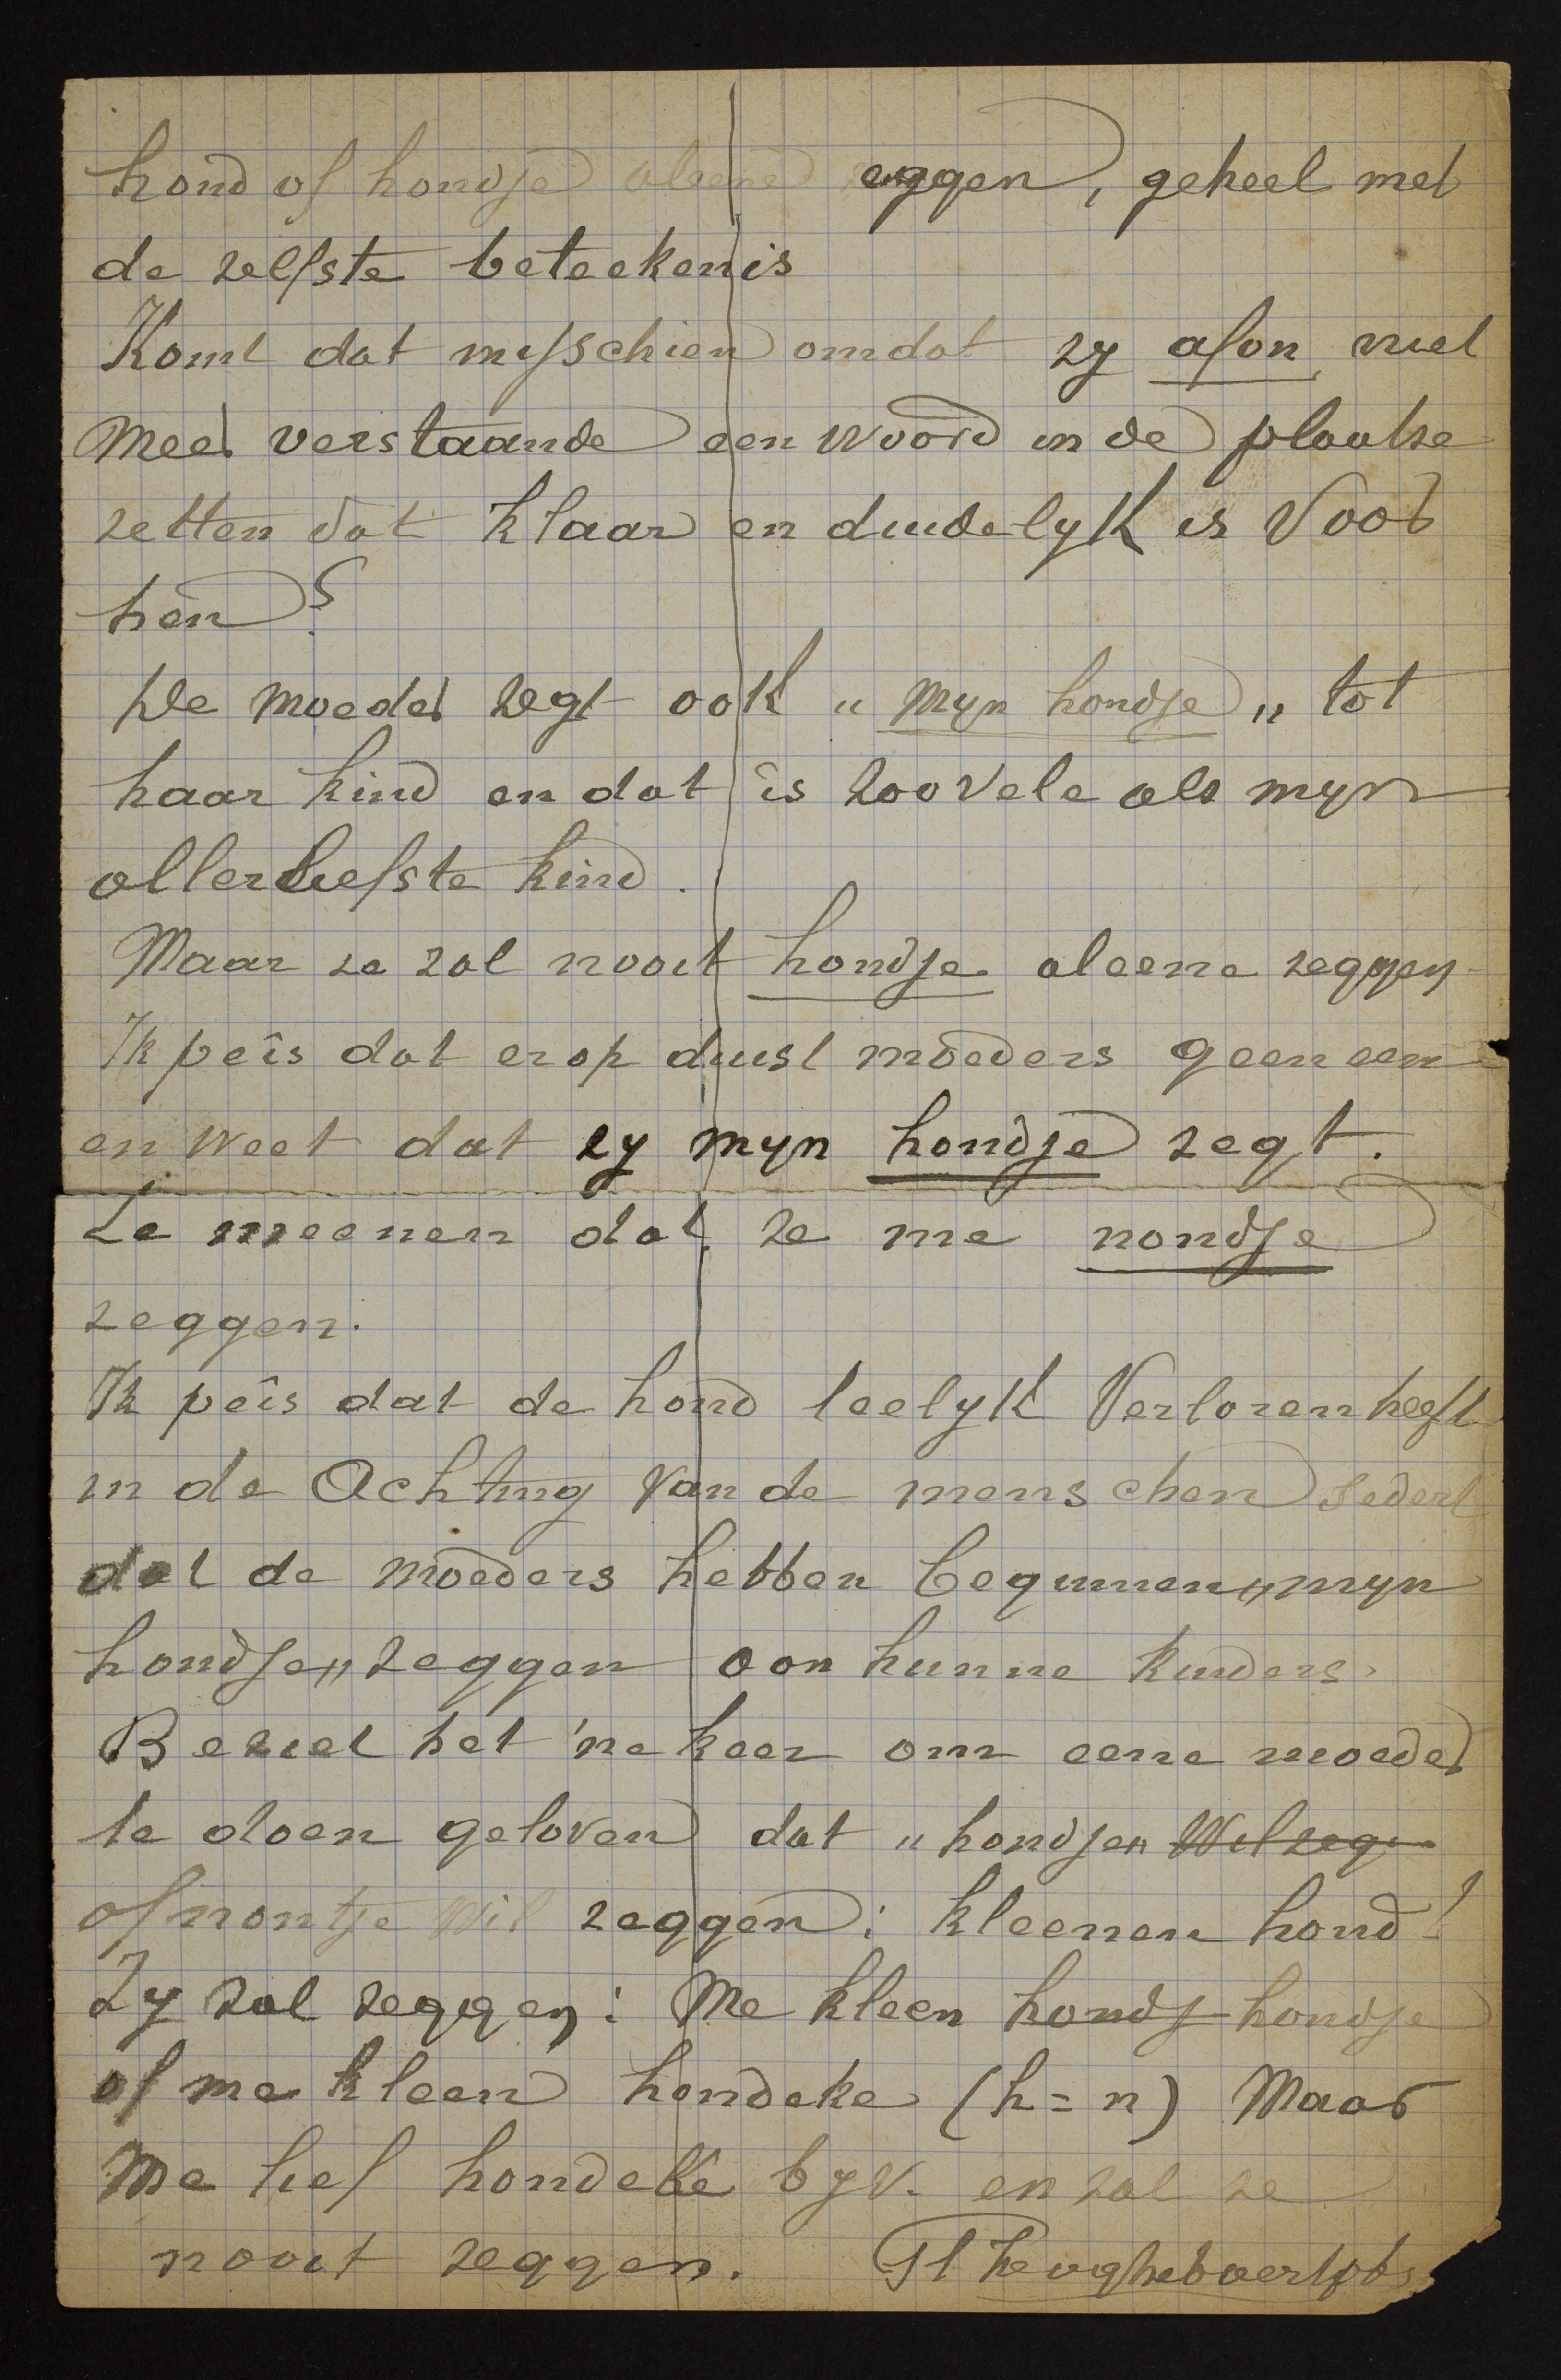 hond of hondje aleene zeggen, geheel met
de zelfste beteekenis
Komt dat misschien omdat zy afon niet
meer verstaande een woord in de plaatse
zetten dat klaar en duidelyk is voor
hen?
De moeder zegt ook „ myn hondje „ tot
haar kind en dat is zoovele als myn
allerliefste kind.
Maar ze zal nooit hondje aleene zeggen
Ik peis dat er op duist moeders geen eene
en weet dat zy myn hondje zegt.
Ze meenen dat ze me nondje
zeggen.
Ik peis dat de hond leelyk verloren heeft
in de Achting van de menschen sedert
dat de moeders hebben beginnen „ myn
hondje „ zeggen aan hunne kinders.
Beziet het 'ne keer om eene moeder
te doen geloven dat „ hondje „ wil zegn
of nontje wil zeggen: kleenen hond!
Zy zal zeggen: Me kleen hondj hondje
of me kleen hondeke (h = n) Maar
Me lief hondeke byv. en zal ze
nooit zeggen.